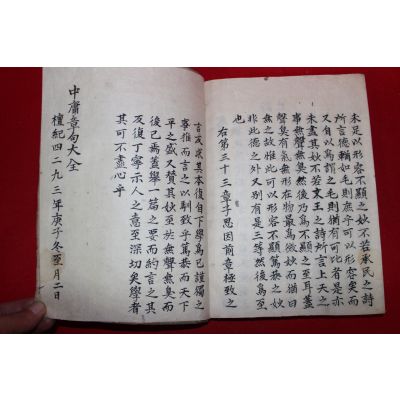 未足以形容不顯之妙不若烝民之詩
所言德輶如毛則庶乎可以形容矣而
又自以爲謂之毛則猶有可比者是亦
未盡其妙不若文王之詩所言上天之
事無聲無臭然後乃爲不顯之至耳蓋
聲臭有氣無形在物最爲微妙而猶曰
無之故惟此可以形容不顯篤恭之妙
非此德之外又別有是三等然後爲至
也
右第三十三章子思因前章極致之
言反求其本復自下學爲己謹獨之
事推而言之以馴致乎篤恭而天下
平之盛又贊其妙至於無聲無臭而
後已焉蓋擧一篇之要而約言之其
反復丁寧示人之意至深切矣學者
其可不盡心乎
中庸章句大全
檀紀四二九三年庚子冬至月二日